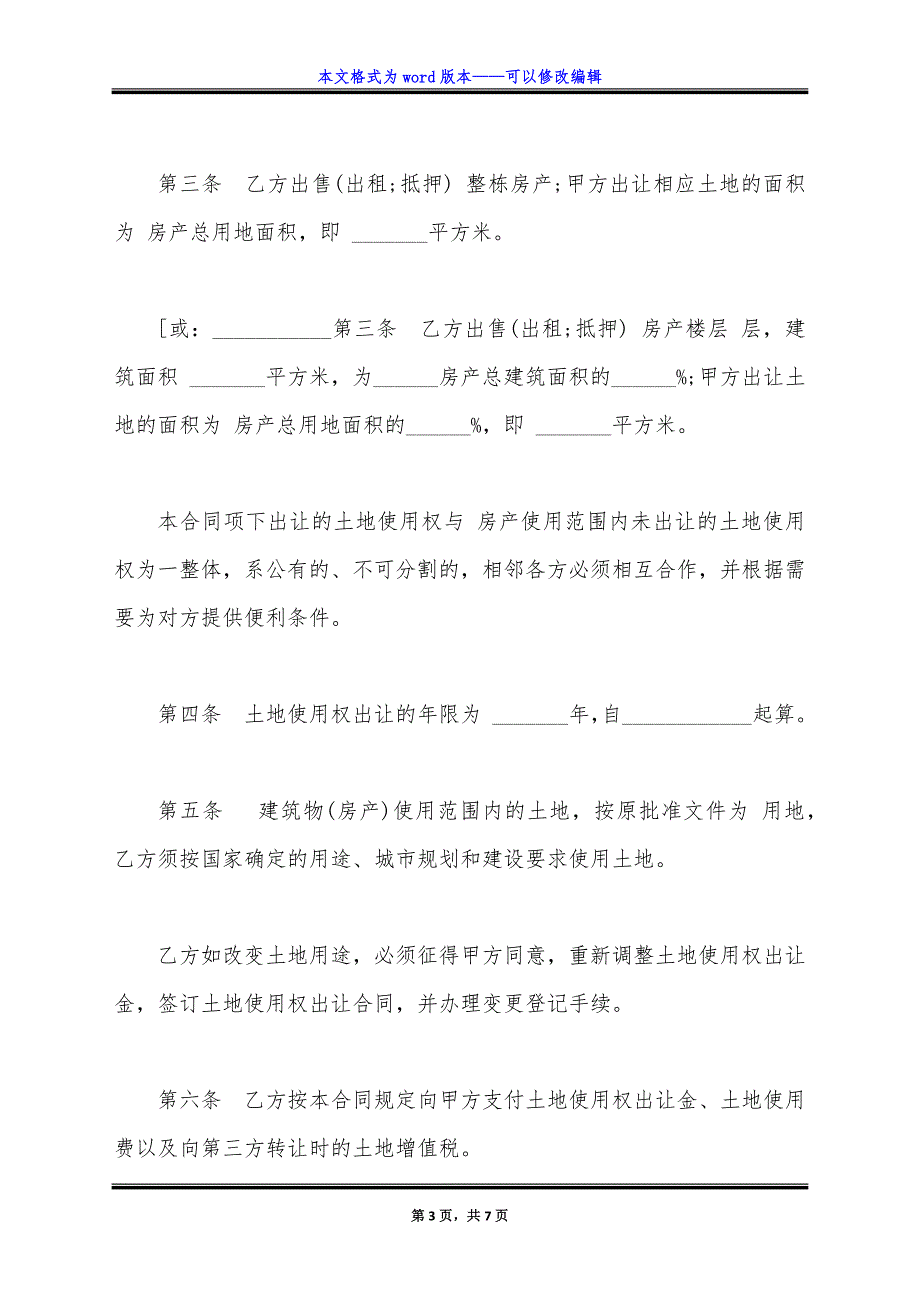 本文格式为 word 版本——可以修改编辑
第三条　乙方出售(出租;抵押) 整栋房产;甲方出让相应土地的面积
为 房产总用地面积，即 _______平方米。
[或：___________第三条　乙方出售(出租;抵押) 房产楼层 层，建
筑面积 _______平方米，为______房产总建筑面积的______%;甲方出让土
地的面积为 房产总用地面积的______%，即 _______平方米。
本合同项下出让的土地使用权与 房产使用范围内未出让的土地使用
权为一整体，系公有的、不可分割的，相邻各方必须相互合作，并根据需
要为对方提供便利条件。
第四条　土地使用权出让的年限为 _______年,自____________起算。
第五条　 建筑物(房产)使用范围内的土地，按原批准文件为 用地，
乙方须按国家确定的用途、城市规划和建设要求使用土地。
乙方如改变土地用途，必须征得甲方同意，重新调整土地使用权出让
金，签订土地使用权出让合同，并办理变更登记手续。
第六条　乙方按本合同规定向甲方支付土地使用权出让金、土地使用
费以及向第三方转让时的土地增值税。
第 3 页，共 7 页